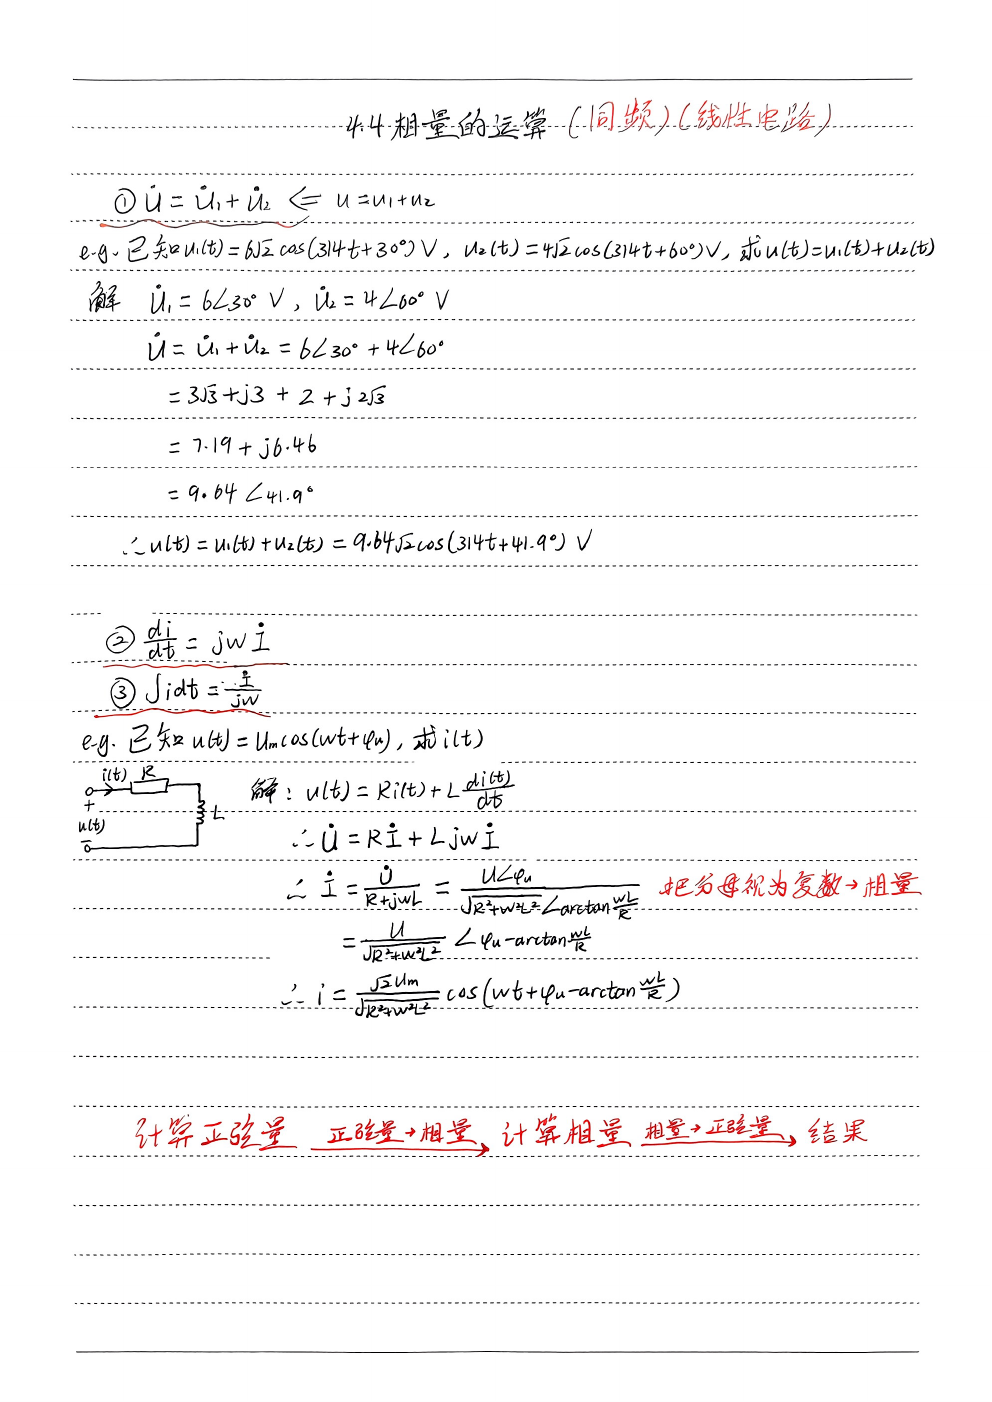 4.4 相量的运算 (同频) (线性电路)
① U̇ = U̇₁ + U̇₂ ⇐ u = u₁ + u₂
e.g. 已知 u₁(t) = 6√2 cos(314t + 30°) V, u₂(t) = 4√2 cos(314t + 60°) V, 求 u(t) = u₁(t) + u₂(t)
解 U̇₁ = 6∠30° V, U̇₂ = 4∠60° V
U̇ = U̇₁ + U̇₂ = 6∠30° + 4∠60°
= 3√3 + j3 + 2 + j2√3
= 7.19 + j6.46
= 9.64∠41.9°
∴ u(t) = u₁(t) + u₂(t) = 9.64√2 cos(314t + 41.9°) V
② di/dt = jwİ
③ ∫idt = İ/jw
e.g. 已知 u(t) = Um cos(wt + φu), 求 i(t)
i(t) R L + u(t) −
解: u(t) = Ri(t) + L di(t)/dt
∴ U̇ = Rİ + Ljwİ
∴ İ = U̇/(R+jwL) = U∠φu / (√(R²+w²L²) ∠arctan wL/R) 把分母视为复数→相量
= U/√(R²+w²L²) ∠φu − arctan wL/R
∴ i = √2Um/√(R²+w²L²) cos(wt + φu − arctan wL/R)
计算正弦量 正弦量→相量 计算相量 相量→正弦量 结果